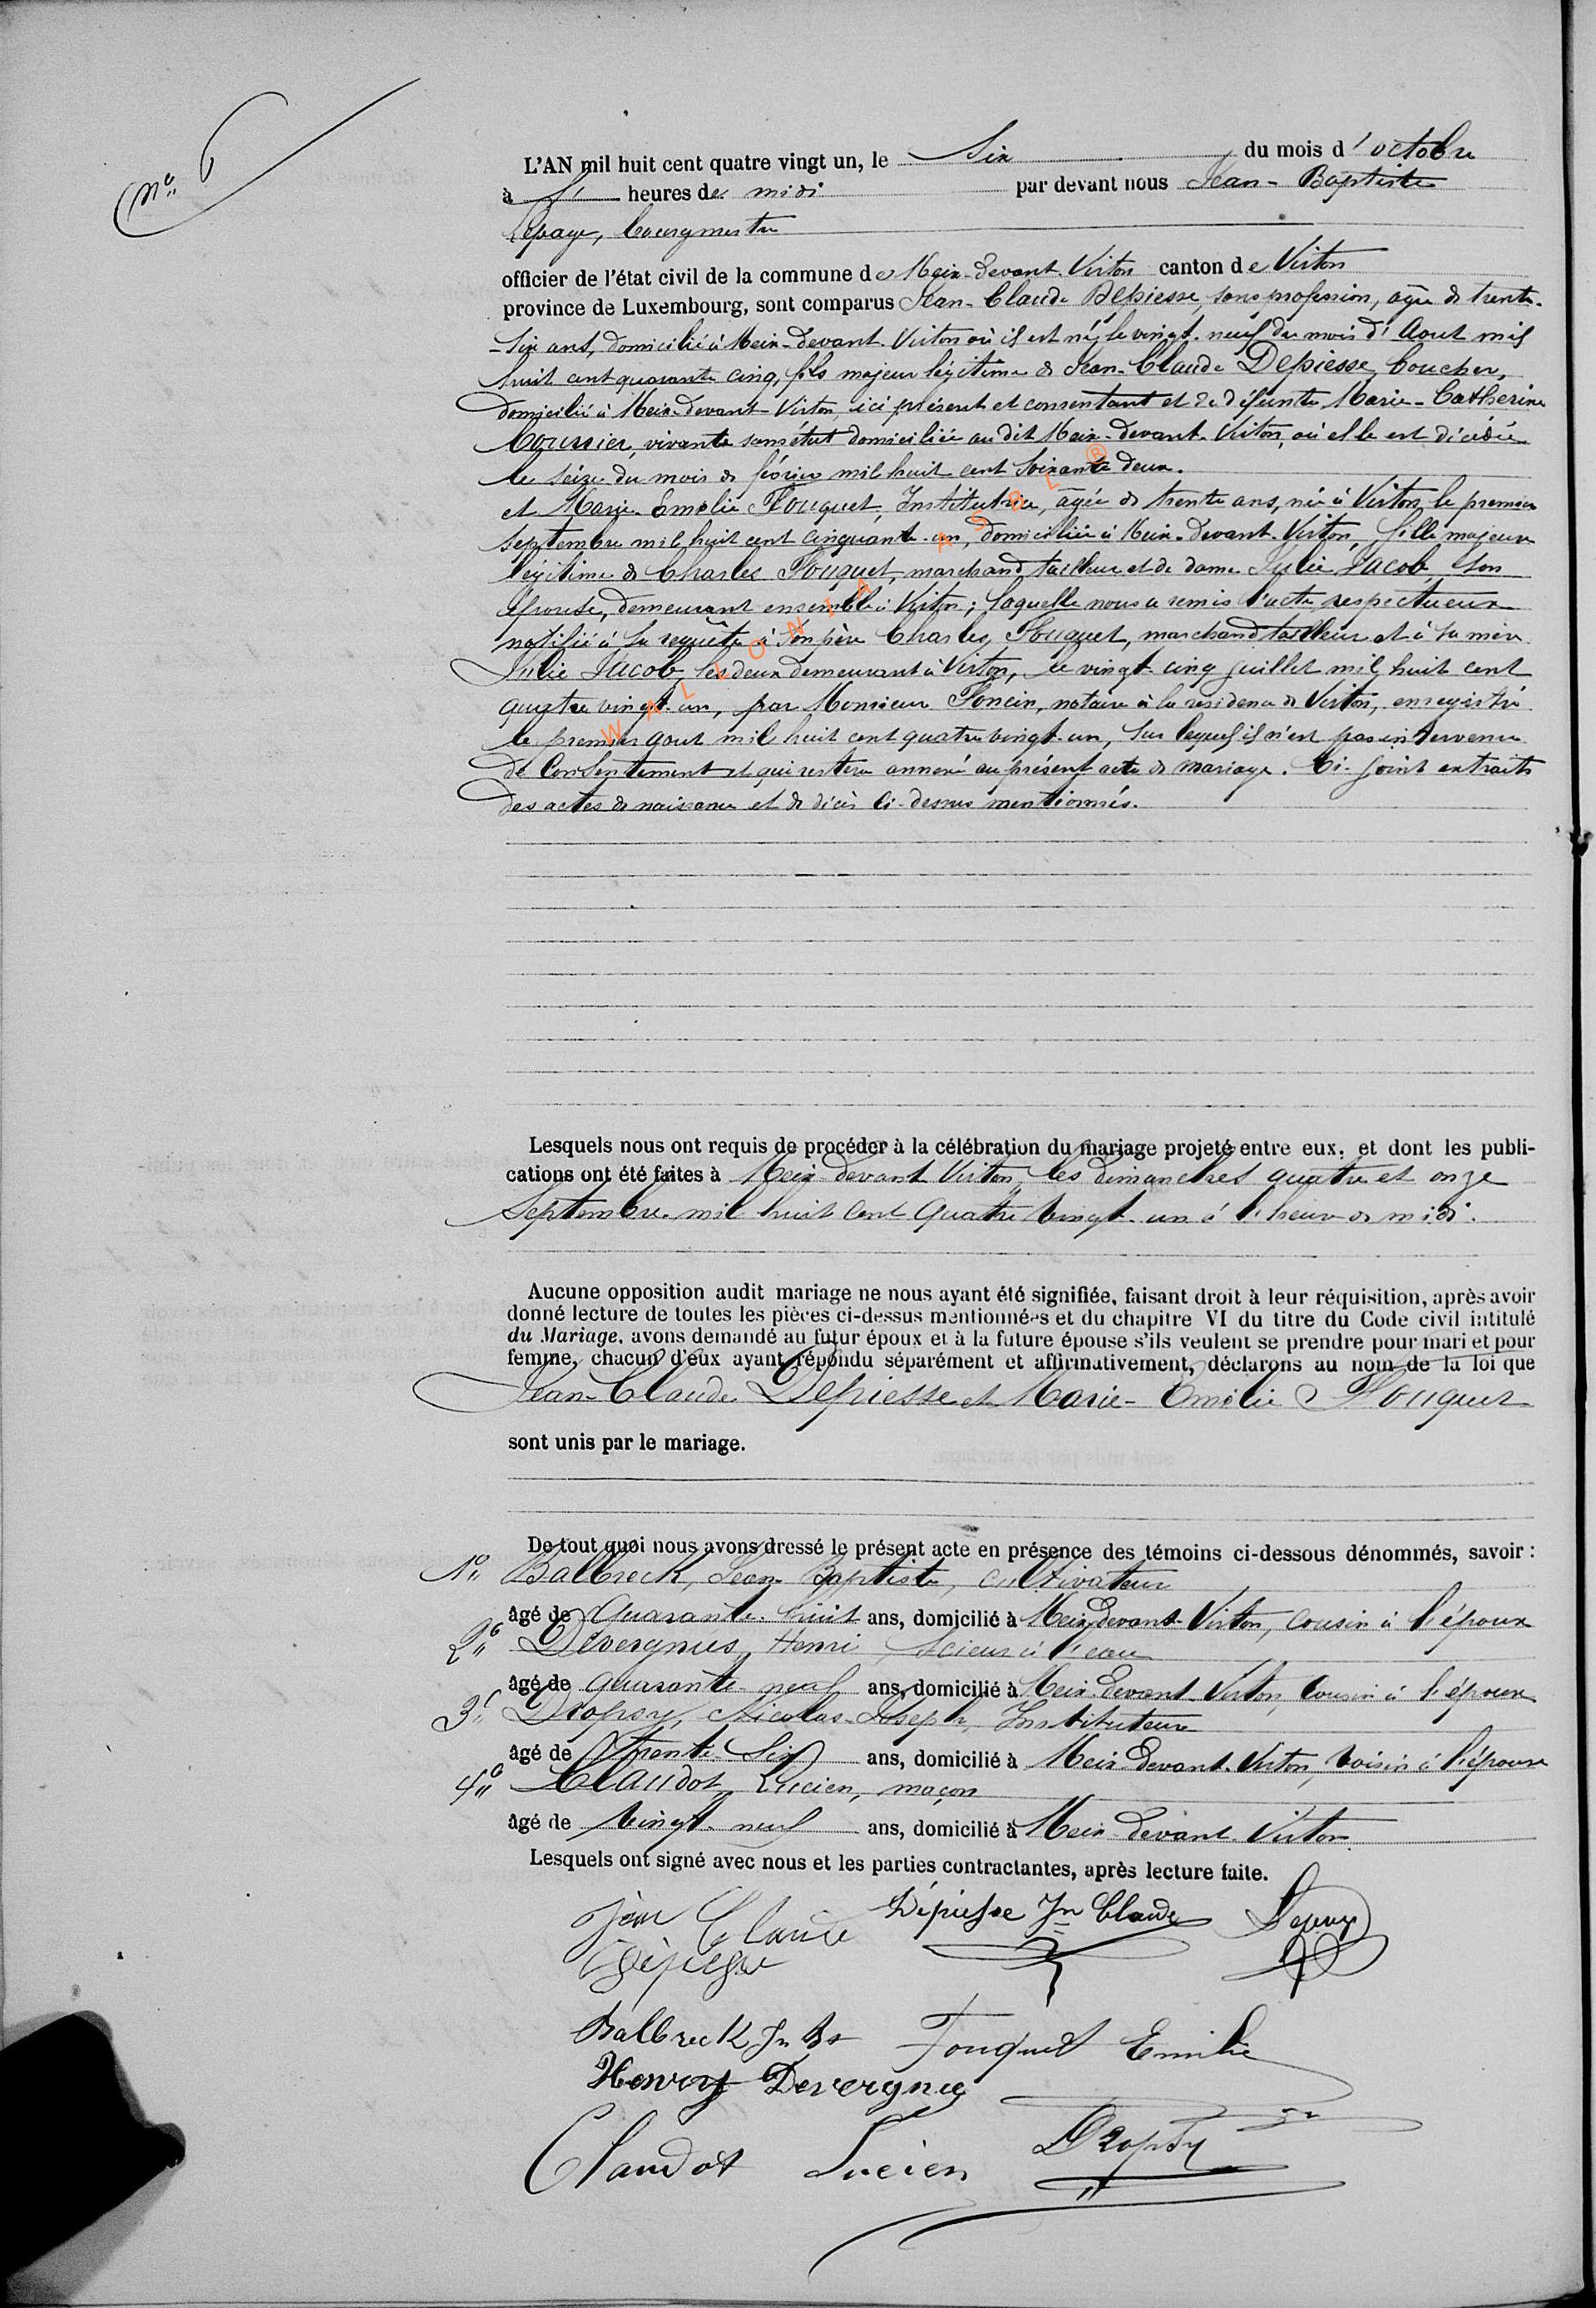 N° 6
L'AN mil huit cent quatre vingt un, le Six du mois d'octobre
à heures de midi par devant nous Jean-Baptiste
Lepage, bourgmestre
officier de l'état civil de la commune de Meix-devant-Virton canton de Virton
province de Luxembourg, sont comparus Jean-Claude Depiesse, sans profession, âgé de trente-
-six ans, domicilié à Meix-devant-Virton où il est né, le vingt-neuf du mois d'Aout mil
huit cent quarante cinq, fils majeur légitime de Jean-Claude Depiesse, boucher,
domicilié à Meix-devant-Virton, ici présent et consentant et de défunte Marie-Catherine
vivante sans état domiciliée au dit Meix-devant-Virton, où elle est décédée
le seize du mois de février mil huit cent soixante deux.
et Marie-Emélie Fouquet, Institutrice, âgée de trente ans, née à Virton le premier
septembre mil huit cent cinquante-un, domiciliée à Meix-devant-Virton, fille majeure
légitime de Charles Fouquet, marchand tailleur et de dame Julie Jacob, son
épouse, demeurant ensemble à Virton; laquelle nous a remis l'acte respectueux
notifié à sa requête à son père Charles, Fouquet, marchand tailleur et à sa mère
Julie Jacob, les deux demeurant à Virton, le vingt-cinq juillet mil huit cent
quatre vingt-un, par Monsieur Foncin, notaire à la résidence de Virton, enregistré
le premier aout mil huit cent quatre vingt-un, sur lequel il n'est pas intervenu
de consentement et qui restera annexé au présent acte de mariage. Ci-joint extraits
des actes de naissance et de décès ci-dessus mentionnés.
Lesquels nous ont requis de procéder à la célébration du mariage projeté entre eux, et dont les publi-
cations ont été faites à Meix-devant-Virton, les dimanches quatre et onze
Septembre mil huit cent quatre vingt-un à l'heure de midi.
Aucune opposition audit mariage ne nous ayant été signifiée, faisant droit à leur réquisition, après avoir
donné lecture de toutes les pièces ci-dessus mentionnées et du chapitre VI du titre du Code civil intitulé
du Mariage, avons demandé au futur époux et à la future épouse s'ils veulent se prendre pour mari et pour
femme, chacun d'eux ayant répondu séparément et affirmativement, déclarons au nom de la loi que
Jean-Claude Depiesse et Marie-Emélie Fouquet
sont unis par le mariage.
De tout quoi nous avons dressé le présent acte en présence des témoins ci-dessous dénommés, savoir :
1° Balbreck, Jean Baptiste, cultivateur
âgé de quarante-huit ans, domicilié à Meix-devant-Virton, cousin à l'époux
2° Devergnies, Henri, scieur à l'eau
âgé de quarante-neuf ans, domicilié à Meix-devant-Virton, cousin à l'époux
3° Dropsy, Nicolas-Joseph, Instituteur
âgé de trente-six ans, domicilié à Meix-devant-Virton, voisin à l'épouse
4° Claudot, Lucien, maçon
âgé de vingt-neuf ans, domicilié à Meix-devant-Virton
Lesquels ont signé avec nous et les parties contractantes, après lecture faite.
Jean Claude Dépiesse Jn Claude Lepage
Dépiesse
Balbreck Jn Bt Fouquet Emélie
Henry Devergnies
Claudot Lucien Dropsy
WALLONIA ASBL ®